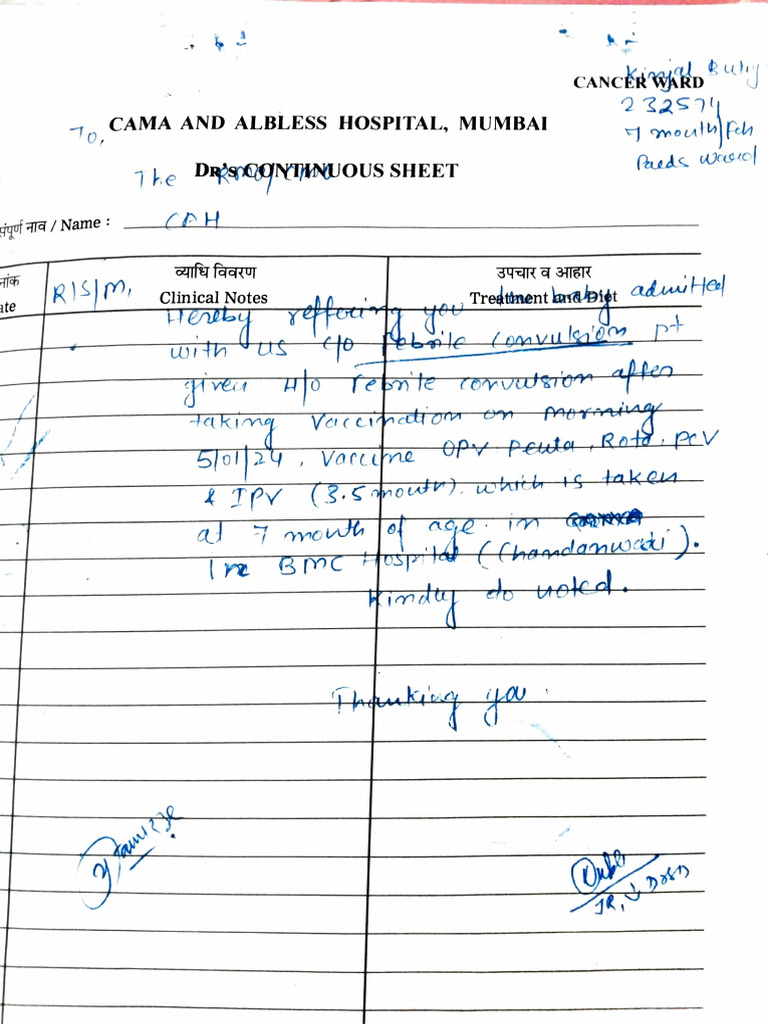 CANCER WARD
Kinjal
232571
7 month/Fch
Paeds ward
To,
CAMA AND ALBLESS HOSPITAL, MUMBAI
The RMO/CMO
DR's CONTINUOUS SHEET
संपूर्ण नाव / Name :
CAH
नांक
ate
व्याधि विवरण
Clinical Notes
उपचार व आहार
Treatment and Diet
R/S/M,
Hereby reffering you the baby admitted
with us c/o febrile convulsion pt
given H/o febrile convulsion after
taking vaccination on morning
5/01/24. Vaccine OPV Penta, Rota, PCV
& IPV (3.5 month). which is taken
at 7 month of age. in
In BMC Hospital (Chandanwadi).
Kindly do noted.
Thanking you.
JR,